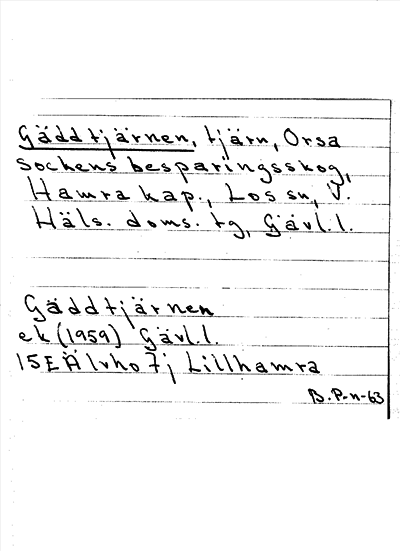 Gäddtjärnen, tjärn, Orsa
sockens besparingsskog,
Hamra kap., Los sn, V.
Häls. doms. tg, Gävl.l.
Gäddtjärnen
ek (1959) Gävl.l.
15E Älvho 7j Lillhamra
B. P-n-63